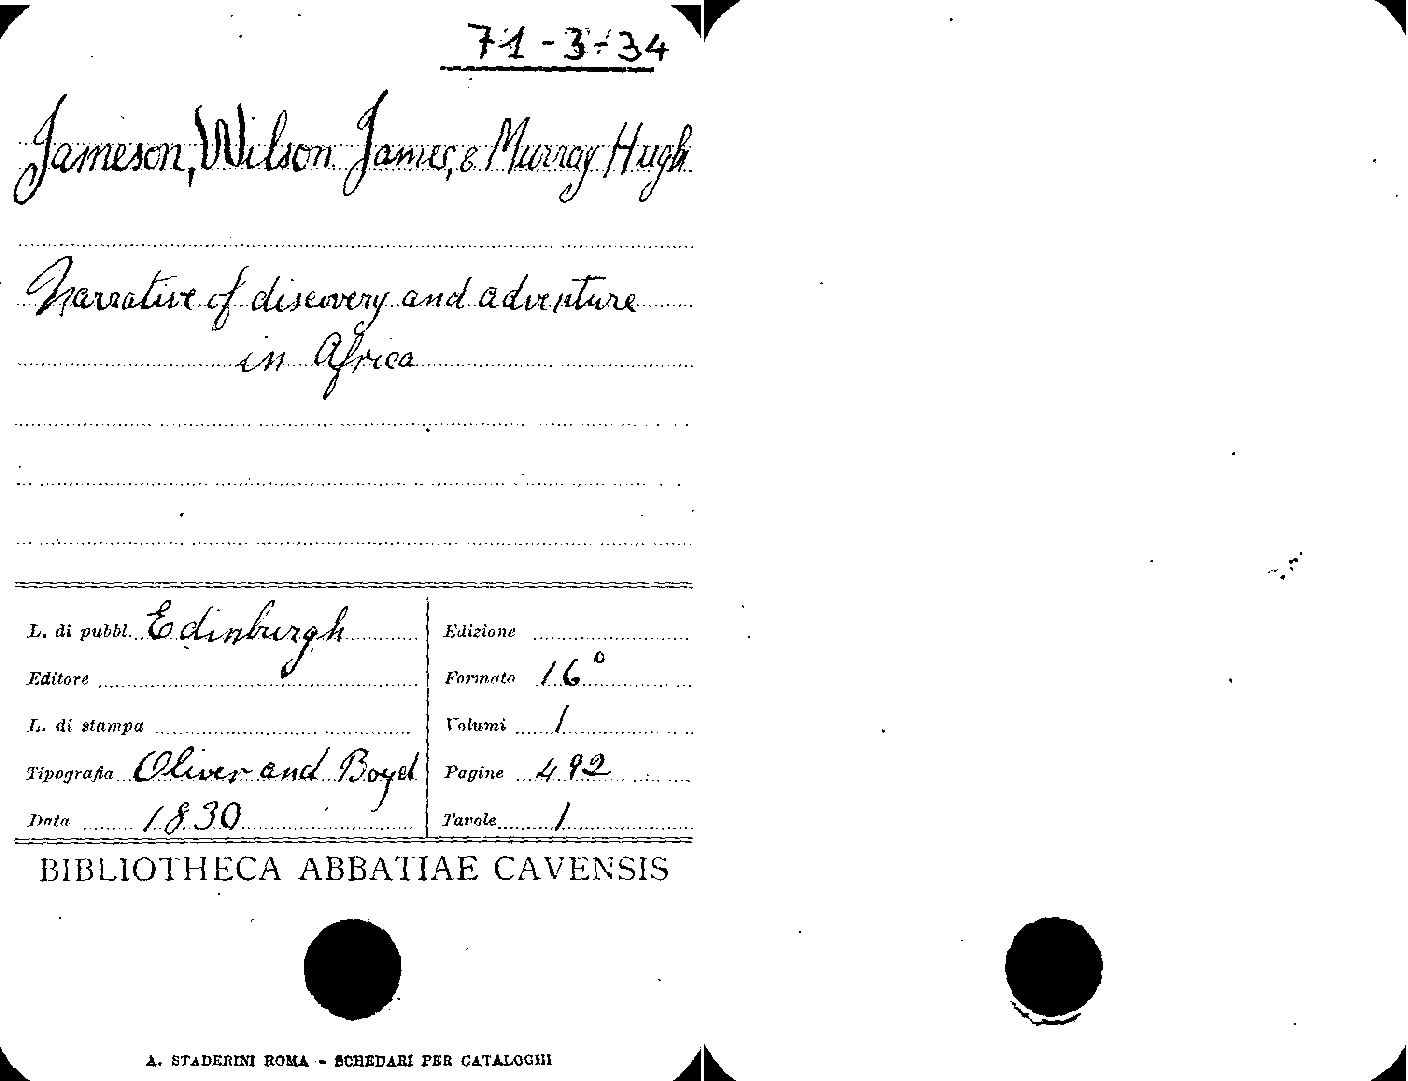 71-3-34
Jameson, Wilson James, & Murray Hugh
Narrative of discovery and adventure
in Africa
L. di pubbl. Edinburgh
Editore
L. di stampa
Tipografia Oliver and Boyd
Data 1830
Edizione
Formato 16°
Volumi 1
Pagine 492
Tavole 1
BIBLIOTHECA ABBATIAE CAVENSIS
A. STADERINI ROMA - SCHEDARI PER CATALOGHI